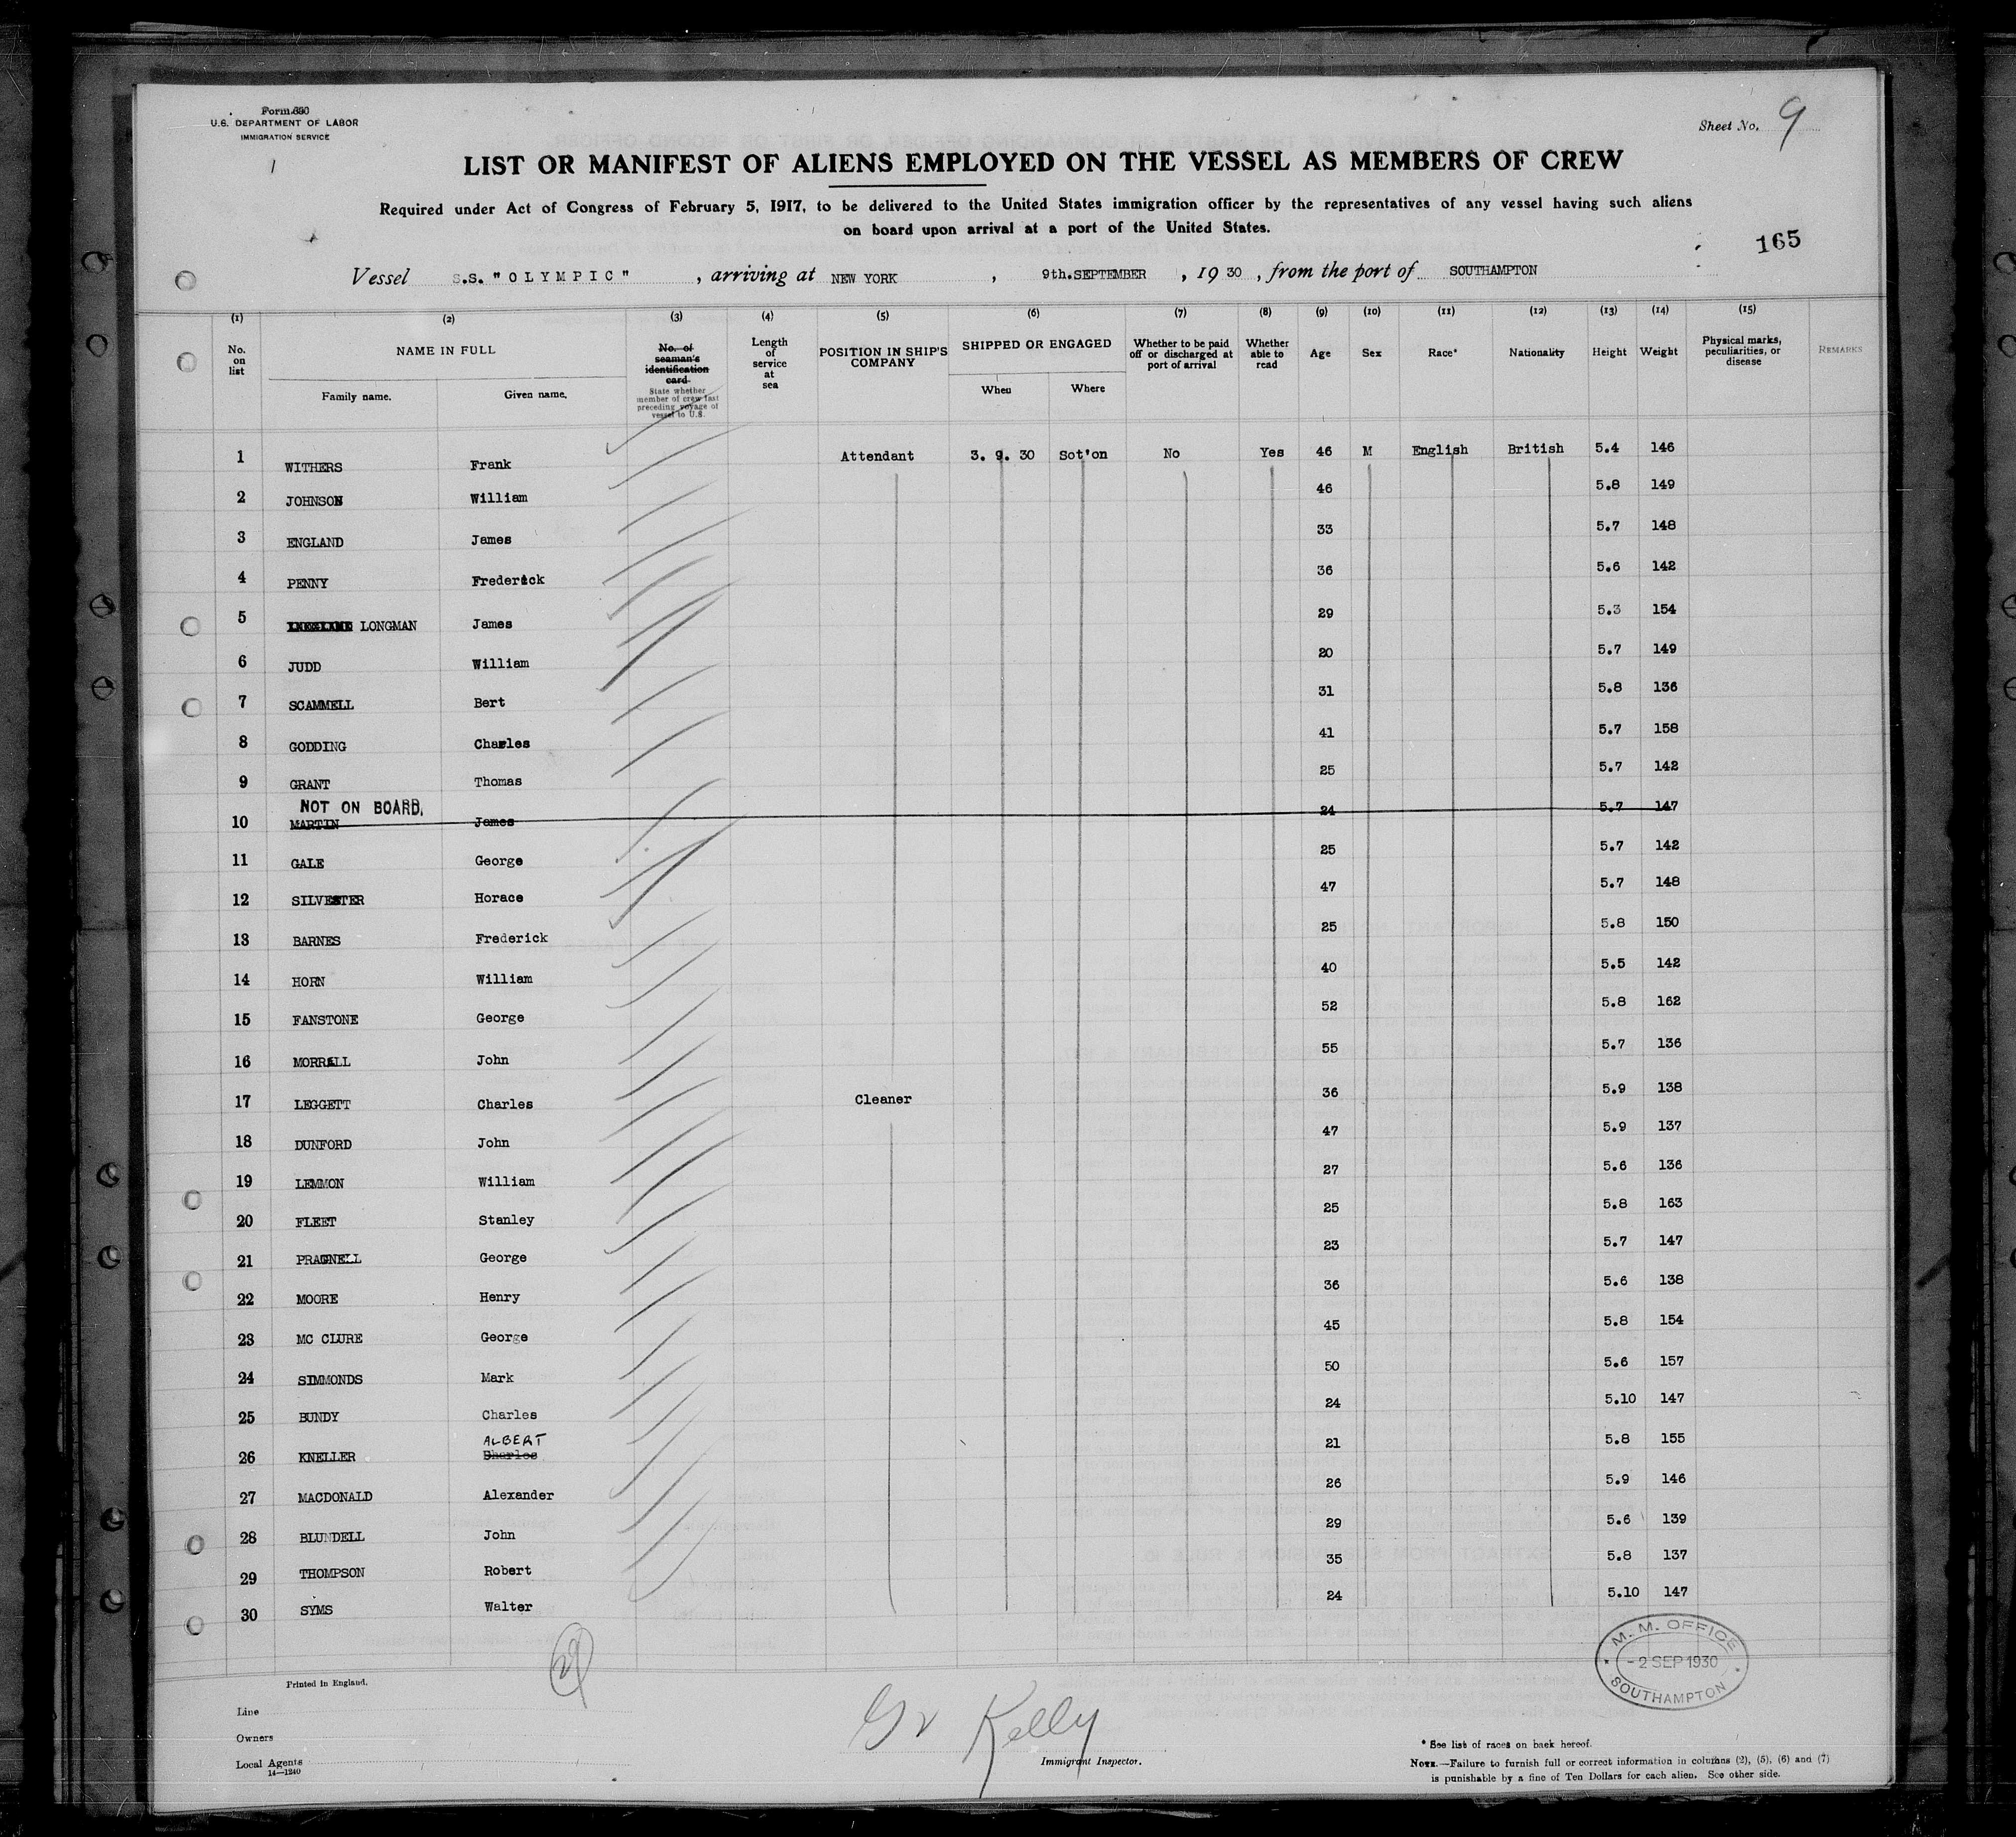 Form 680
U.S. DEPARTMENT OF LABOR
IMMIGRATION SERVICE
Sheet No. 9
LIST OR MANIFEST OF ALIENS EMPLOYED ON THE VESSEL AS MEMBERS OF CREW
Required under Act of Congress of February 5, 1917, to be delivered to the United States immigration officer by the representatives of any vessel having such aliens
on board upon arrival at a port of the United States.
165
Vessel S.S. "OLYMPIC", arriving at NEW YORK, 9th.SEPTEMBER, 19 30, from the port of SOUTHAMPTON
(1) (2) (3) (4) (5) (6) (7) (8) (9) (10) (11) (12) (13) (14) (15)
No. on list NAME IN FULL Family name. Given name. No. of seaman's identification card State whether member of crew last preceding voyage of vessel to U.S. Length of service at sea POSITION IN SHIP'S COMPANY SHIPPED OR ENGAGED When Where Whether to be paid off or discharged at port of arrival Whether able to read Age Sex Race* Nationality Height Weight Physical marks, peculiarities, or disease REMARKS
1 WITHERS Frank Attendant 3. 9. 30 Sot'on No Yes 46 M English British 5.4 146
2 JOHNSON William 46 5.8 149
3 ENGLAND James 33 5.7 148
4 PENNY Frederick 36 5.6 142
5 LONGMAN James 29 5.3 154
6 JUDD William 20 5.7 149
7 SCAMMELL Bert 31 5.8 136
8 GODDING Charles 41 5.7 158
9 GRANT Thomas 25 5.7 142
NOT ON BOARD.
10 MARTIN James 24 5.7 147
11 GALE George 25 5.7 142
12 SILVESTER Horace 47 5.7 148
13 BARNES Frederick 25 5.8 150
14 HORN William 40 5.5 142
15 FANSTONE George 52 5.8 162
16 MORRALL John 55 5.7 136
17 LEGGETT Charles Cleaner 36 5.9 138
18 DUNFORD John 47 5.9 137
19 LEMMON William 27 5.6 136
20 FLEET Stanley 25 5.8 163
21 PRAGNELL George 23 5.7 147
22 MOORE Henry 36 5.6 138
23 MC CLURE George 45 5.8 154
24 SIMMONDS Mark 50 5.6 157
25 BUNDY Charles 24 5.10 147
ALBERT
26 KNELLER Charles 21 5.8 155
27 MACDONALD Alexander 26 5.9 146
28 BLUNDELL John 29 5.6 139
29 THOMPSON Robert 35 5.8 137
30 SYMS Walter 24 5.10 147
M. M. OFFICE
- 2 SEP 1930
SOUTHAMPTON
Printed in England.
29
Line
Owners
Local Agents
14—1240
Kelly
Immigrant Inspector.
* See list of races on back hereof.
NOTE.—Failure to furnish full or correct information in columns (2), (5), (6) and (7)
is punishable by a fine of Ten Dollars for each alien. See other side.